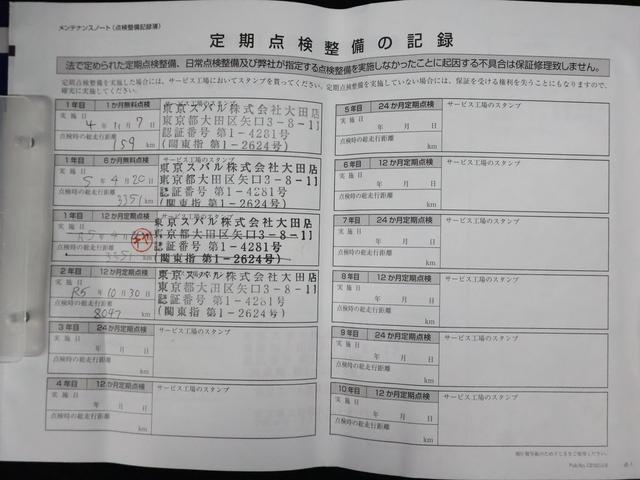 メンテナンスノート(点検整備記録簿)
定期点検整備の記録
法で定められた定期点検整備、日常点検整備及び弊社が指定する点検整備を実施しなかったことに起因する不具合は保証修理致しません。
定期点検整備を実施した場合には、サービス工場においてスタンプを貰ってください。定期点検整備を実施していない場合には、保証を受ける権利を失うことにもなりますので、
確実に実施してください。
1年目 1か月無料点検
実施日 4年11月7日
点検時の総走行距離
159 km
東京スバル株式会社大田店
東京都大田区矢口3-8-11
認証番号 第1-4281号
(関東指 第1-2624号)
1年目 6か月無料点検
実施日 5年4月20日
点検時の総走行距離
3351 km
サービス工場のスタンプ
東京スバル株式会社大田店
東京都大田区矢口3-8-11
認証番号 第1-4281号
(関東指 第1-2624号)
1年目 12か月定期点検
実施日 R5年4月
点検時の総走行距離
3351 km
東京スバル株式会社大田店
東京都大田区矢口3-8-11
認証番号 第1-4281号
(関東指 第1-2624号)
2年目 12か月定期点検
実施日 R5年10月30日
点検時の総走行距離
8047 km
東京スバル株式会社大田店
東京都大田区矢口3-8-11
認証番号 第1-4281号
(関東指 第1-2624号)
3年目 24か月定期点検
サービス工場のスタンプ
実施日 年 月 日
点検時の総走行距離
km
4年目 12か月定期点検
サービス工場のスタンプ
実施日 年 月 日
点検時の総走行距離
km
5年目 24か月定期点検
サービス工場のスタンプ
実施日 年 月 日
点検時の総走行距離
km
6年目 12か月定期点検
サービス工場のスタンプ
実施日 年 月 日
点検時の総走行距離
km
7年目 24か月定期点検
サービス工場のスタンプ
実施日 年 月 日
点検時の総走行距離
km
8年目 12か月定期点検
サービス工場のスタンプ
実施日 年 月 日
点検時の総走行距離
km
9年目 24か月定期点検
サービス工場のスタンプ
実施日 年 月 日
点検時の総走行距離
km
10年目 12か月定期点検
サービス工場のスタンプ
実施日 年 月 日
点検時の総走行距離
km